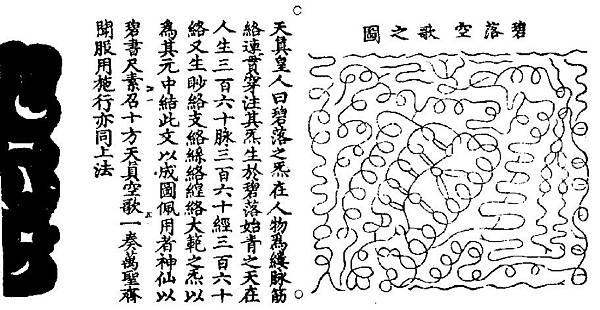 碧落空歌之圖
天真皇人曰碧落之炁在人物為縷脉筋
絡連貫穿注其炁生於碧落始青之天在
人生三百六十脉三百六十經三百六十
絡又生眇絡支絡絲絡絡大範之炁以
為其元中結此文以成圖佩用者神仙以
碧書尺素召十方天真空歌一奏萬聖齊
開服用施行亦同上法